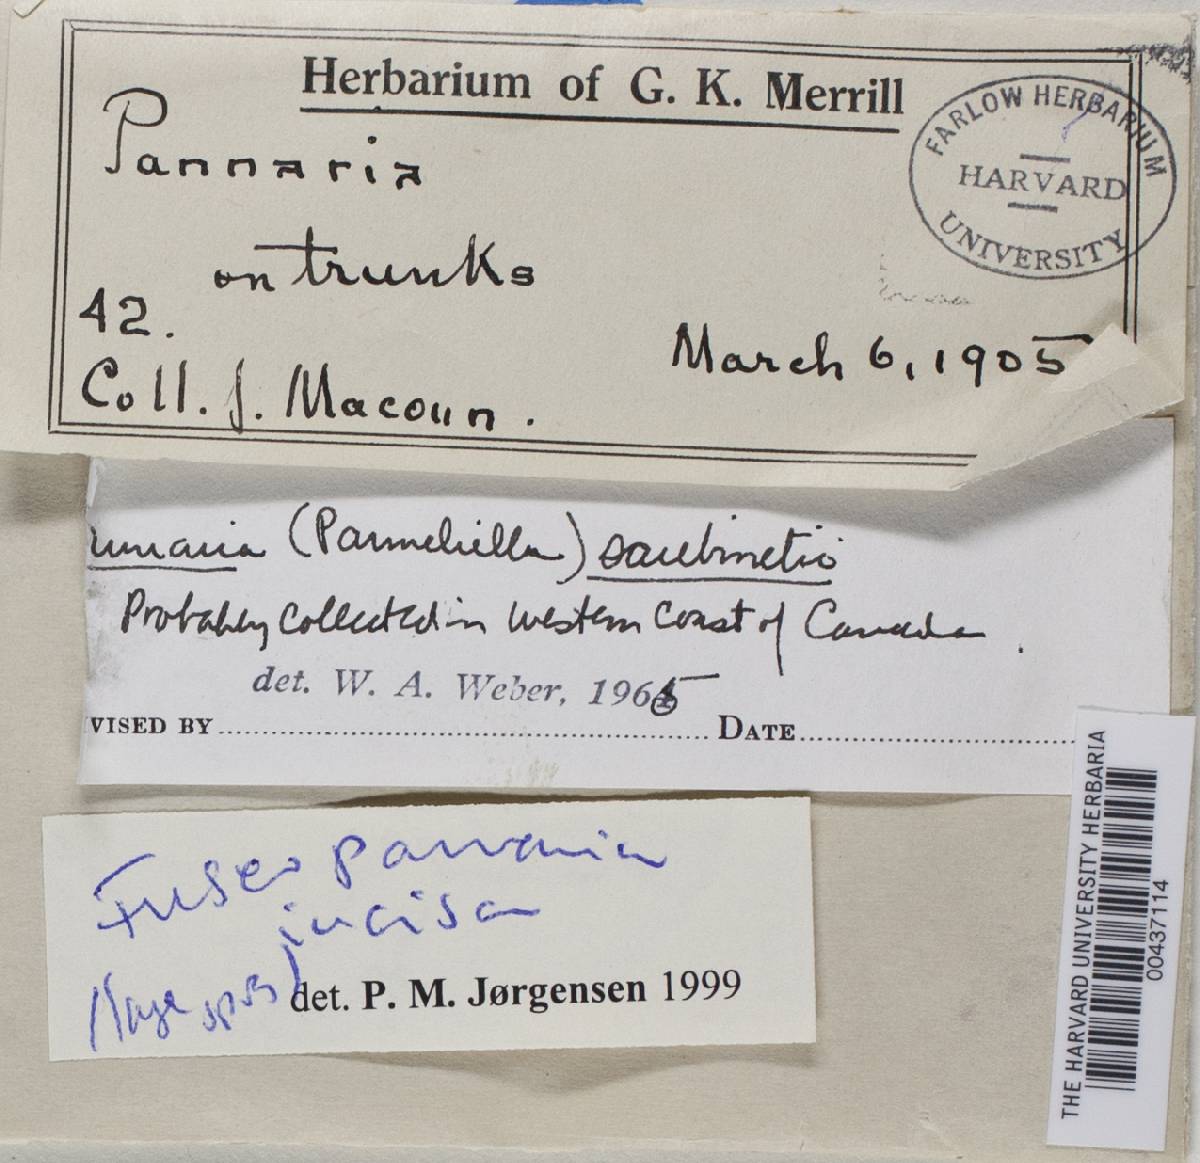 Herbarium of G. K. Merrill
FARLOW HERBARIUM
HARVARD
UNIVERSITY
Pannaria
on trunks
42.
March 6, 1905
Coll. J. Macoun.
(Parmeliella) saubinetii
Probably collected in western coast of Canada.
det. W. A. Weber, 1965
VISED BY DATE
Fuscopannaria
incisa
det. P. M. Jørgensen 1999
THE HARVARD UNIVERSITY HERBARIA
00437114